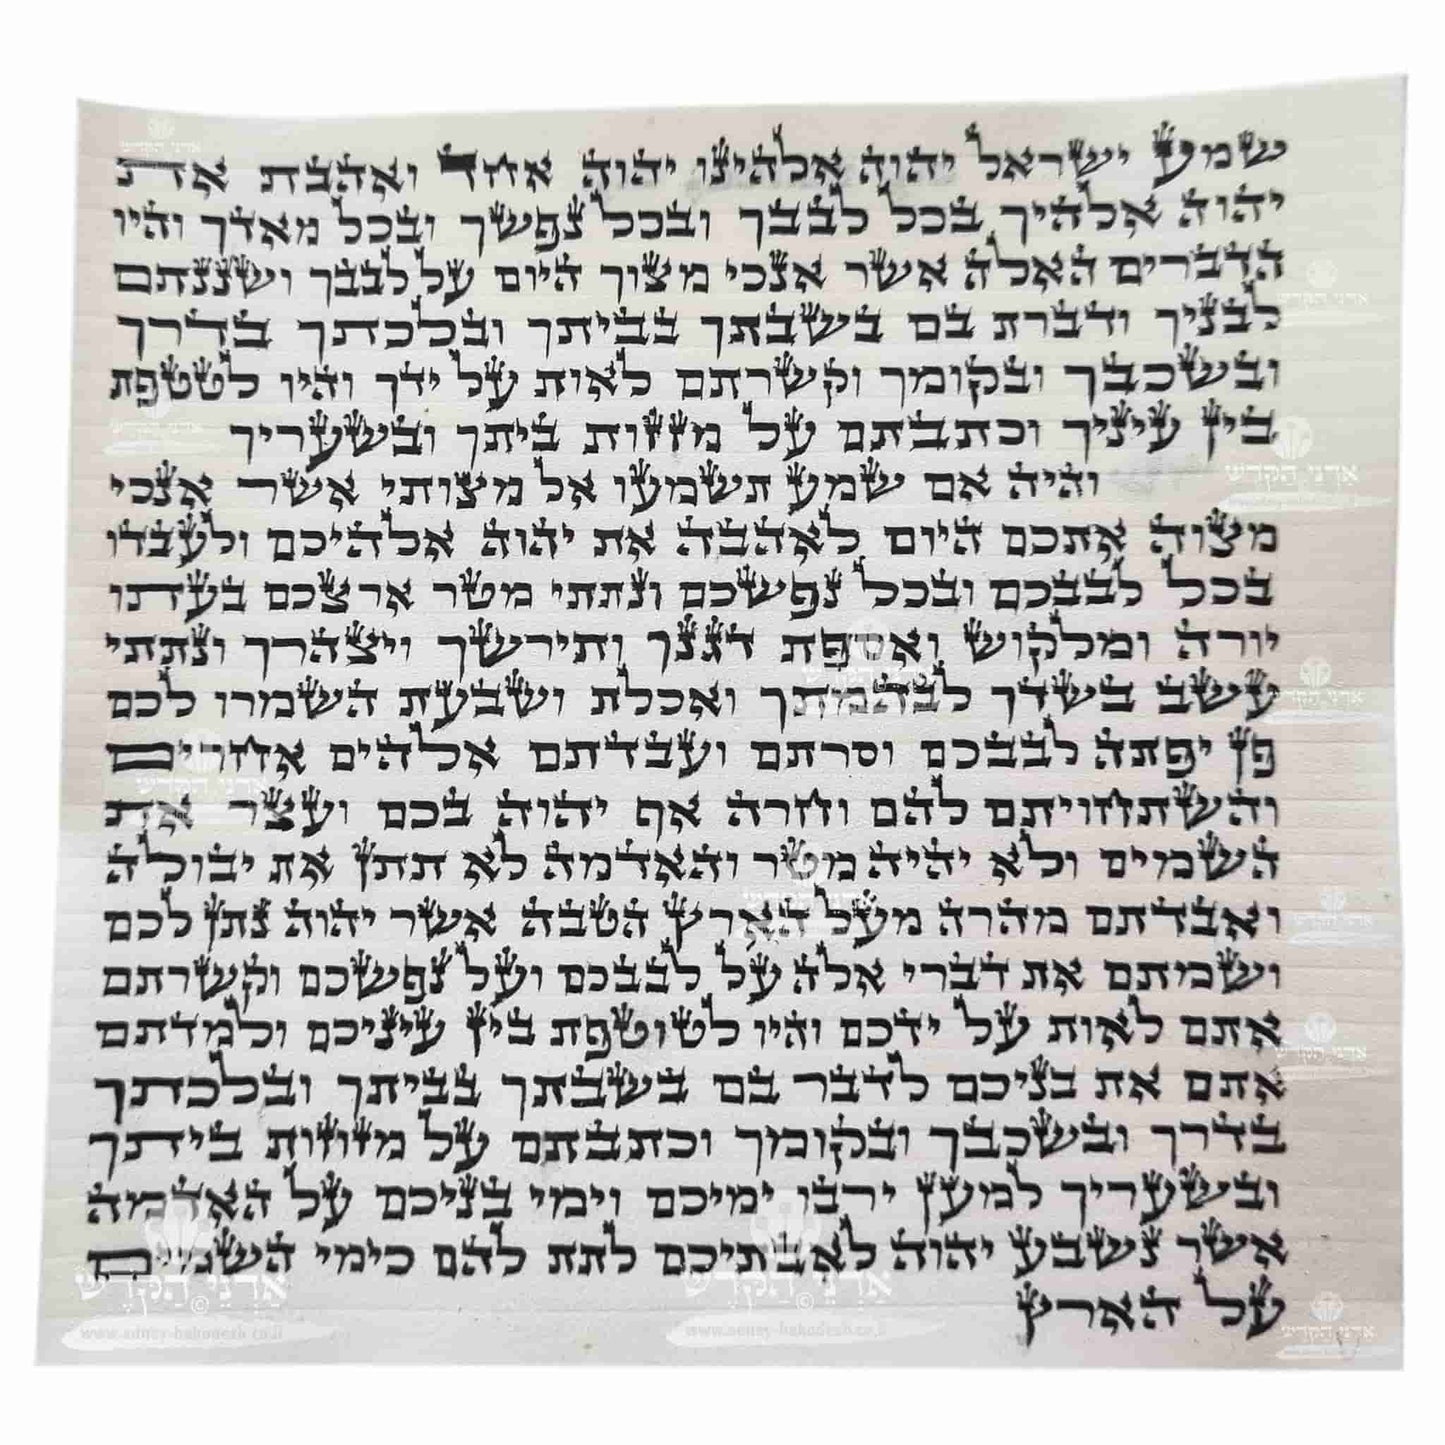 שמע ישראל יהוה אלהינו יהוה אחד ואהבת את
יהוה אלהיך בכל לבבך ובכל נפשך ובכל מאדך והיו
הדברים האלה אשר אנכי מצוך היום על לבבך ושננתם
לבניך ודברת בם בשבתך בביתך ובלכתך בדרך
ובשכבך ובקומך וקשרתם לאות על ידך והיו לטטפת
בין עיניך וכתבתם על מזזות ביתך ובשעריך
והיה אם שמע תשמעו אל מצותי אשר אנכי
מצוה אתכם היום לאהבה את יהוה אלהיכם ולעבדו
בכל לבבכם ובכל נפשכם ונתתי מטר ארצכם בעתו
יורה ומלקוש ואספת דגנך ותירשך ויצהרך ונתתי
עשב בשדך לבהמתך ואכלת ושבעת השמרו לכם
פן יפתה לבבכם וסרתם ועבדתם אלהים אחרים
והשתחויתם להם וחרה אף יהוה בכם ועצר את
השמים ולא יהיה מטר והאדמה לא תתן את יבולה
ואבדתם מהרה מעל הארץ הטבה אשר יהוה נתן לכם
ושמתם את דברי אלה על לבבכם ועל נפשכם וקשרתם
אתם לאות על ידכם והיו לטוטפת בין עיניכם ולמדתם
אתם את בניכם לדבר בם בשבתך בביתך ובלכתך
בדרך ובשכבך ובקומך וכתבתם על מזוזות ביתך
ובשעריך למען ירבו ימיכם וימי בניכם על האדמה
אשר נשבע יהוה לאבתיכם לתת להם כימי השמים
על הארץ
אדני הקדש
www.adney-hakodesh.co.il